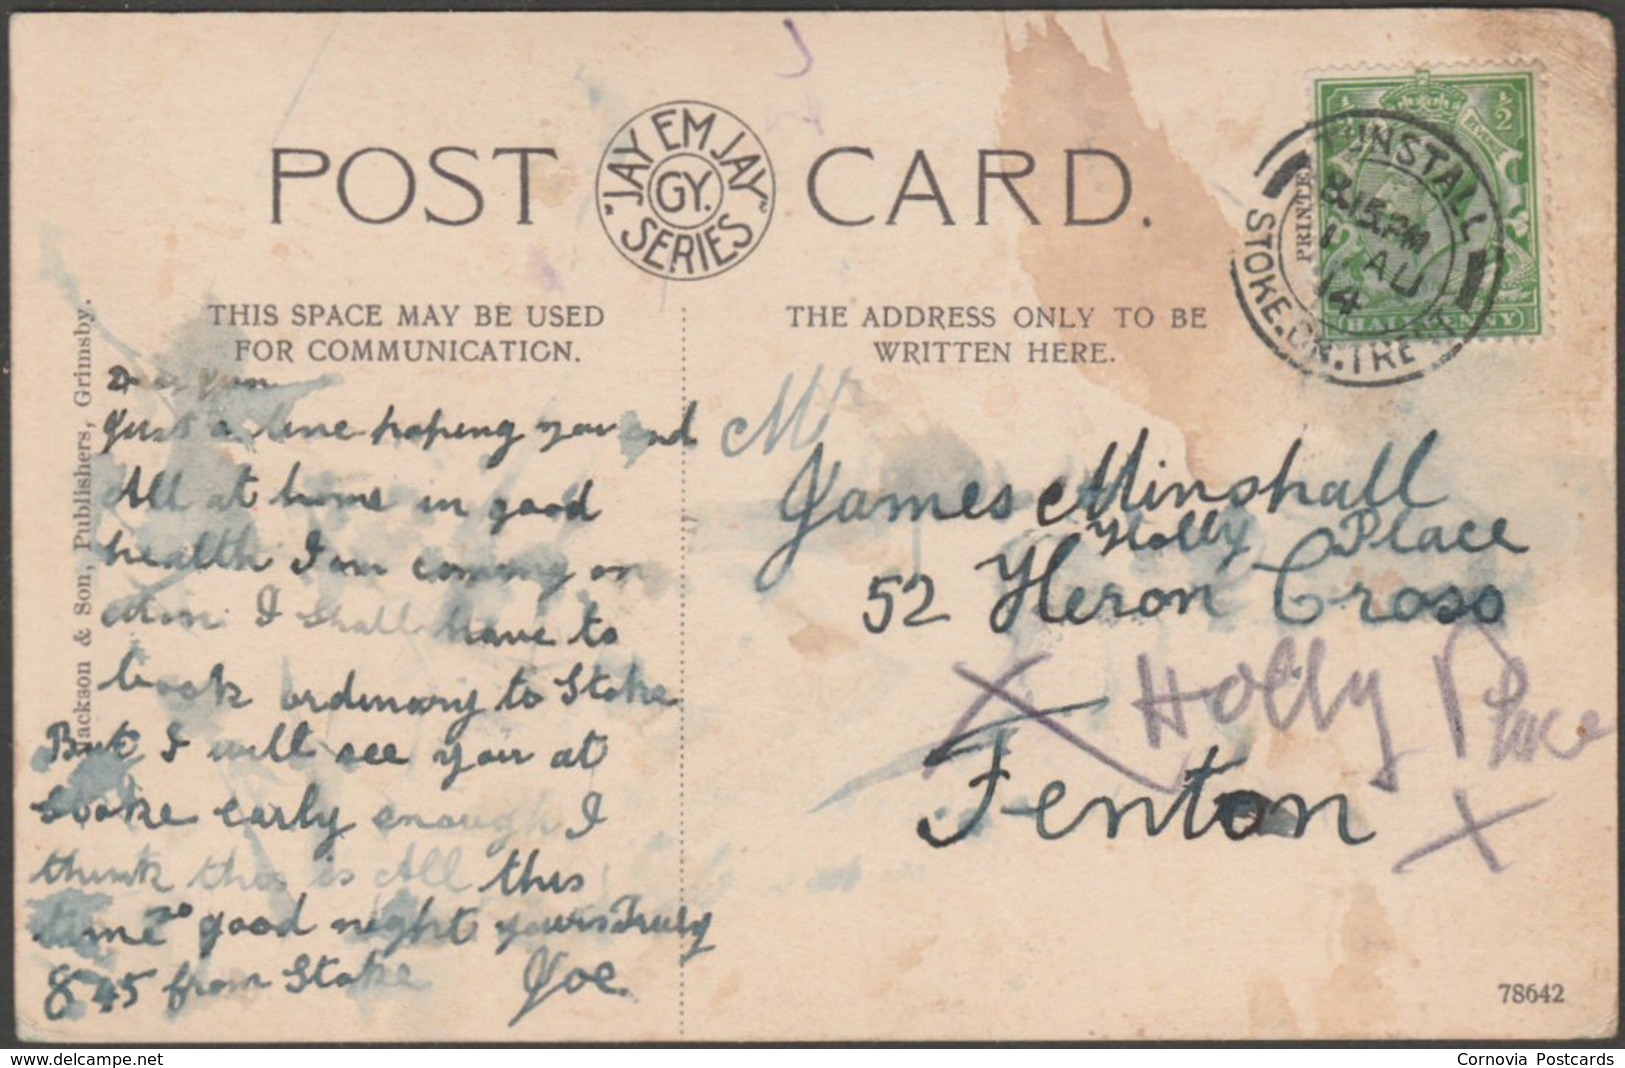 POST CARD.
"JAY EM JAY" SERIES
GY.
THIS SPACE MAY BE USED
FOR COMMUNICATION.
THE ADDRESS ONLY TO BE
WRITTEN HERE.
PRINTE
TUNSTALL
8.15 PM
1 AU
14
STOKE.ON.TRENT
½ ½
REVENUE
HALFPENNY
Jackson & Son, Publishers, Grimsby.
Dear
Just a line hoping you and
All at home in good
health I am coming on
I shall have to
book ordinary to Stoke
But I will see you at
Stoke early enough I
think this is All this
time so good night yours Truly
8 45 from Stoke Joe.
Mr
James Minshall
Holly Place
52 Heron Cross
X Holly Place
Fenton
X
78642
Cornovia Postcards
www.delcampe.net